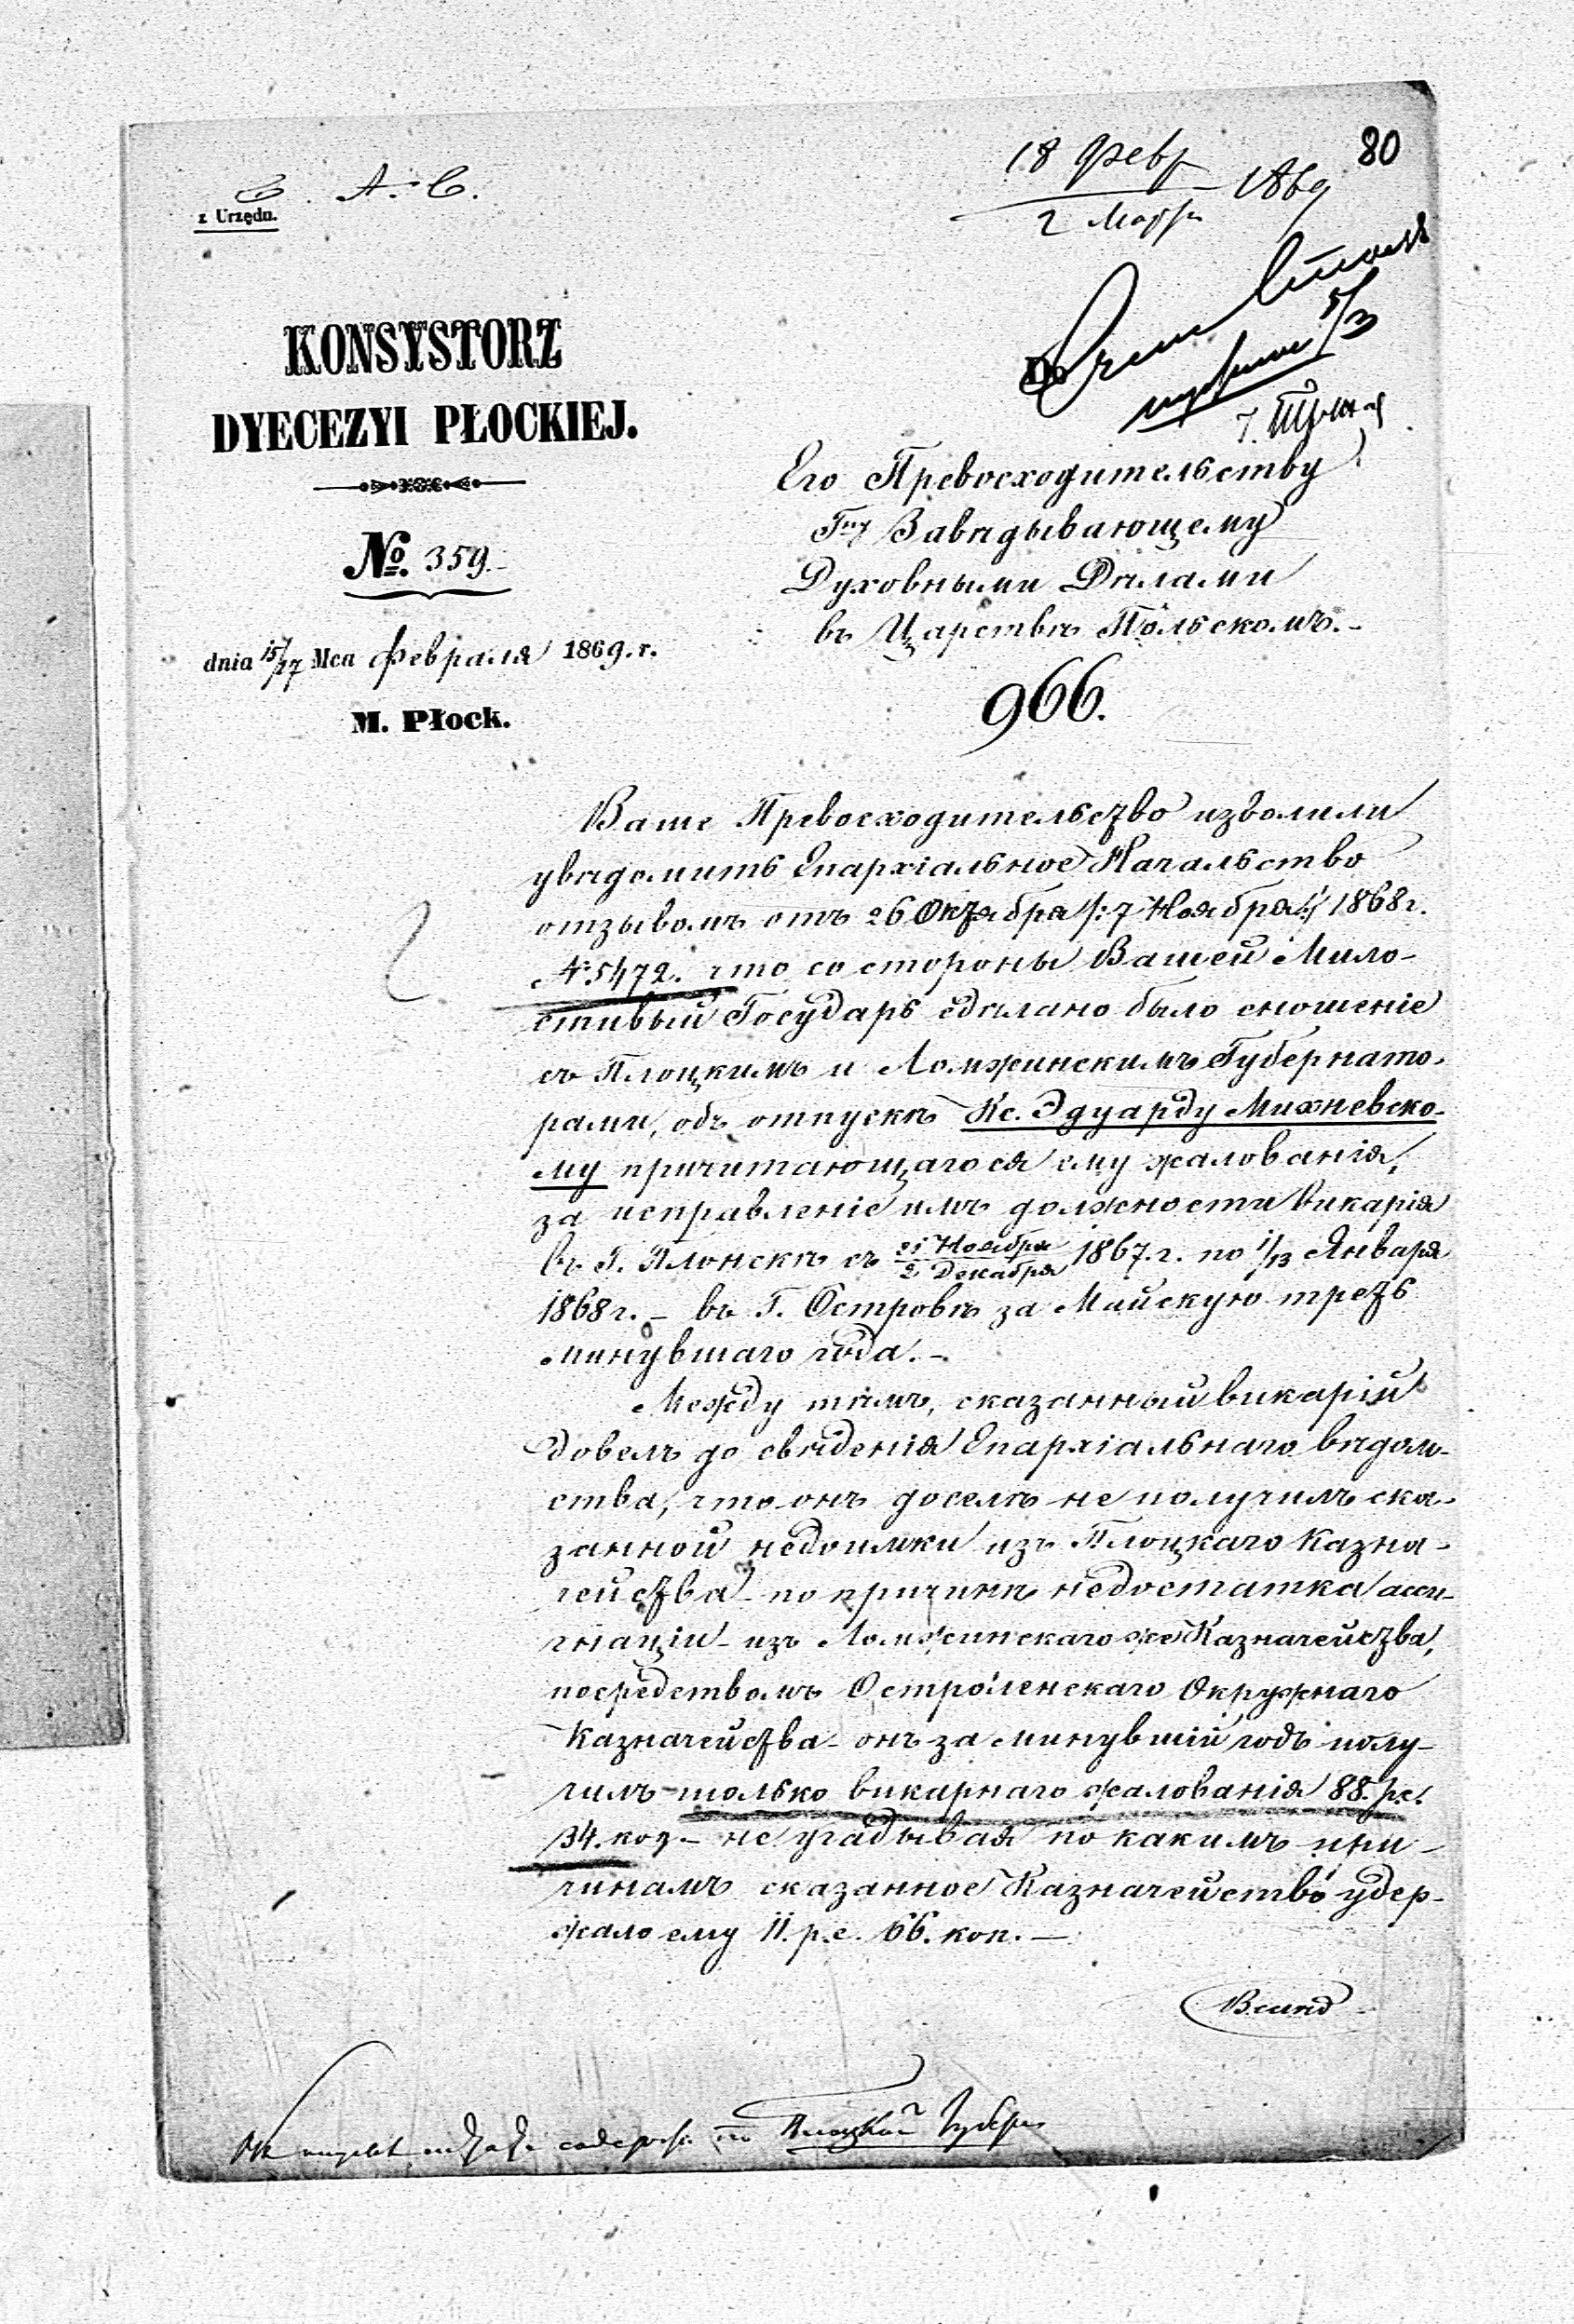 18 Февр
2 Мар
1869
80
С. А. С.
z Urzędu.
KONSYSTORZ
DYECEZYI PŁOCKIEJ.
№. 359.
dnia 15/27 Mca Февраля 1869. r.
M. Płock.
Do
5/3
Его Превосходительству
Гну Завѣдывающему
Духовными Дѣлами
въ Царствѣ Польскомъ.-
966.
Ваше Превосходительство изволили
увѣдомить Епархіальное Начальство
отзывомъ отъ 26 Октября /:7 Ноября:/ 1868 г.
№ 5472. что со стороны Вашей Мило-
стивый Государь сдѣлано было сношеніе
съ Плоцкимъ и Ломжинскимъ Губернато-
рами, объ отпускѣ Кс. Эдуарду Михневско-
му причитающагося ему жалованія,
за исправленіе имъ должности Викарія
въ Г. Плонскѣ съ 21 Ноября / 2 Декабря 1867. г. по 1/13 Января
1868 г. – въ Г. Островѣ за Майскую треть
минувшаго года. –
Между тѣмъ, сказанный викарій
довелъ до свѣдѣнія Епархіальнаго вѣдом-
ства, что онъ доселѣ не получилъ ска-
занной недоимки изъ Плоцкаго Казна-
чейства – по причинѣ недостатка асси-
гнаціи – изъ Ломжинскаго же Казначейства,
посредствомъ Остроленскаго Окружнаго
Казначейства – онъ за минувшій годъ полу-
чилъ – только викарнаго жалованія 88. рс.
34. коп – не угадывая по какимъ при-
чинамъ сказанное Казначейство удер-
жало ему 11. р.с. 66. коп. –
по Плоцкой Губерн